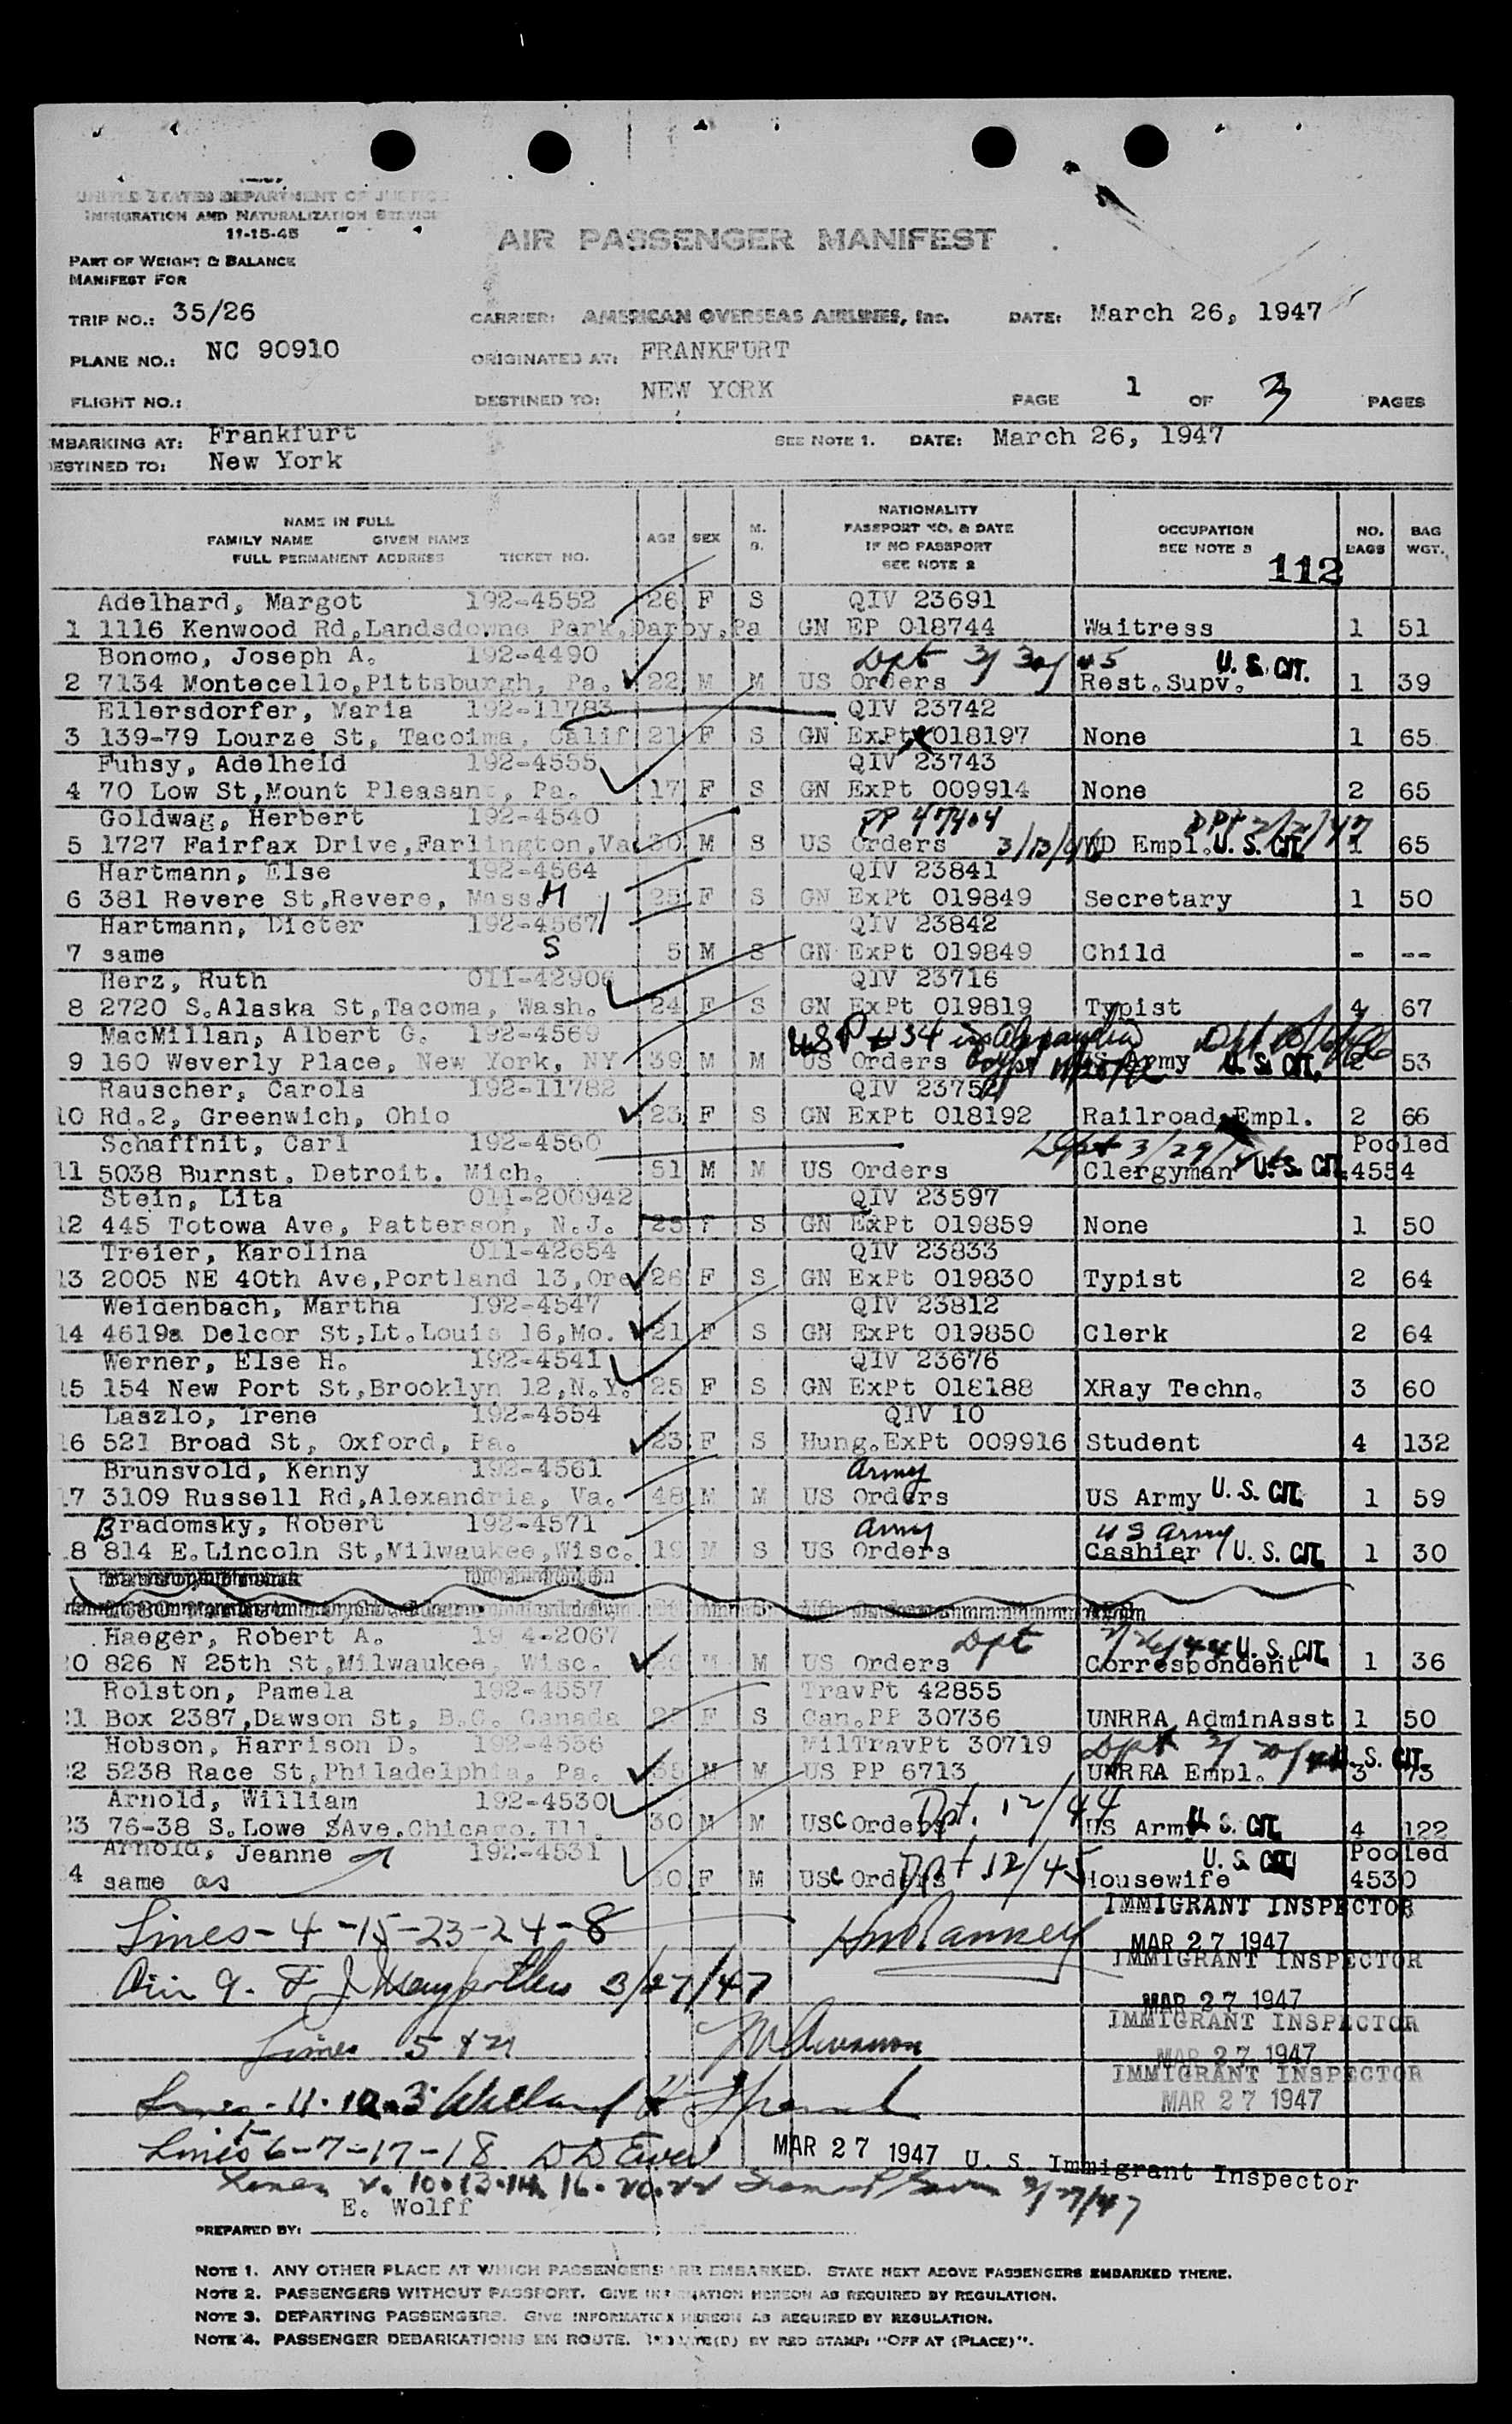 UNITED STATES DEPARTMENT OF JUSTICE
IMMIGRATION AND NATURALIZATION SERVICE
11-15-45
AIR PASSENGER MANIFEST
PART OF WEIGHT & BALANCE
MANIFEST FOR
TRIP NO.: 35/26 CARRIER: AMERICAN OVERSEAS AIRLINES, Inc. DATE: March 26, 1947
PLANE NO.: NC 90910 ORIGINATED AT: FRANKFURT
FLIGHT NO.: DESTINED TO: NEW YORK PAGE 1 OF 3 PAGES
EMBARKING AT: Frankfurt SEE NOTE 1. DATE: March 26, 1947
DESTINED TO: New York
NAME IN FULL
FAMILY NAME GIVEN NAME
FULL PERMANENT ADDRESS TICKET NO.
AGE SEX M. S.
NATIONALITY
PASSPORT NO. & DATE
IF NO PASSPORT
SEE NOTE 2
OCCUPATION
SEE NOTE 3
NO. BAGS
BAG WGT.
112
Adelhard, Margot 192-4552 26 F S QIV 23691
1 1116 Kenwood Rd,Landsdowne Park,Darby,Pa GN EP 018744 Waitress 1 51
Bonomo, Joseph A. 192-4490 Dpt U. S. CIT.
2 7134 Montecello,Pittsburgh, Pa. 22 M M US Orders Rest.Supv. 1 39
Ellersdorfer, Maria 192-11783 QIV 23742
3 139-79 Lourze St, Tacoima, Calif 21 F S GN ExPt 018197 None 1 65
Fuhsy, Adelheid 192-4555 QIV 23743
4 70 Low St,Mount Pleasant, Pa. 17 F S GN ExPt 009914 None 2 65
Goldwag, Herbert 192-4540 PP 47404 Dpt
5 1727 Fairfax Drive,Farlington,Va 30 M S US Orders WD Empl. U. S. CIT. 1 65
Hartmann, Else 192-4564 QIV 23841
6 381 Revere St,Revere, Mass. M 25 F S GN ExPt 019849 Secretary 1 50
Hartmann, Dieter 192-4567 QIV 23842
7 same S 5 M S GN ExPt 019849 Child - --
Herz, Ruth 011-42906 QIV 23716
8 2720 S.Alaska St,Tacoma, Wash. 24 F S GN ExPt 019819 Typist 4 67
MacMillan, Albert G. 192-4569 USP #34
9 160 Weverly Place, New York, NY 39 M M US Orders US Army U. S. CIT. 2 53
Rauscher, Carola 192-11782 QIV 23752
10 Rd.2, Greenwich, Ohio 23 F S GN ExPt 018192 Railroad Empl. 2 66
Schaffnit, Carl 192-4560 Dpt 3/29 Pooled
11 5038 Burnst. Detroit. Mich. 51 M M US Orders Clergyman U. S. CIT. 4554
Stein, Lita 011-200942 QIV 23597
12 445 Totowa Ave, Patterson, N.J. 25 F S GN ExPt 019859 None 1 50
Treier, Karolina 011-42654 QIV 23833
13 2005 NE 40th Ave,Portland 13,Ore 26 F S GN ExPt 019830 Typist 2 64
Weidenbach, Martha 192-4547 QIV 23812
14 4619a Delcor St,Lt.Louis 16,Mo. 21 F S GN ExPt 019850 Clerk 2 64
Werner, Else H. 192-4541 QIV 23676
15 154 New Port St,Brooklyn 12,N.Y. 25 F S GN ExPt 018188 XRay Techn. 3 60
Laszlo, Irene 192-4554 QIV 10
16 521 Broad St, Oxford, Pa. 23 F S Hung.ExPt 009916 Student 4 132
Brunsvold, Kenny 192-4561 Army
17 3109 Russell Rd,Alexandria, Va. 48 M M US Orders US Army U. S. CIT. 1 59
Bradomsky, Robert 192-4571 Army US Army
18 814 E.Lincoln St,Milwaukee,Wisc. 19 M S US Orders Cashier U. S. CIT. 1 30
Haeger, Robert A. 19 4-2067 Dpt U. S. CIT.
20 826 N 25th St,Milwaukee, Wisc. M M US Orders Correspondent 1 36
Rolston, Pamela 192-4557 TravPt 42855
21 Box 2387,Dawson St, B.C. Canada F S Can.PP 30736 UNRRA AdminAsst 1 50
Hobson, Harrison D. 192-4556 MilTravPt 30719 Dpt
22 5238 Race St,Philadelphia, Pa. 35 M M US PP 6713 UNRRA Empl. U. S. CIT. 3 73
Arnold, William 192-4530 Dpt. 12/44
23 76-38 S.Lowe Ave.Chicago.Ill. 30 M M USC Orders US Army U. S. CIT. 4 122
Arnold, Jeanne 192-4531 Dpt 12/45 U. S. CIT. Pooled
24 same as 30 F M USC Orders Housewife 4530
Lines - 4 -15-23-24-8 IMMIGRANT INSPECTOR
MAR 27 1947
IMMIGRANT INSPECTOR
3/27/47
MAR 27 1947
IMMIGRANT INSPECTOR
Lines 5 + 21
MAR 27 1947
IMMIGRANT INSPECTOR
MAR 27 1947
Lines 6-7-17-18 MAR 27 1947 U. S. Immigrant Inspector
Lines 2. 10.13.14. 16. 20.22 3/27/47
E. Wolff
PREPARED BY:
NOTE 1. ANY OTHER PLACE AT WHICH PASSENGERS ARE EMBARKED. STATE NEXT ABOVE PASSENGERS EMBARKED THERE.
NOTE 2. PASSENGERS WITHOUT PASSPORT. GIVE INFORMATION HEREON AS REQUIRED BY REGULATION.
NOTE 3. DEPARTING PASSENGERS. GIVE INFORMATION HEREON AS REQUIRED BY REGULATION.
NOTE 4. PASSENGER DEBARKATIONS EN ROUTE. INDICATE(D) BY RED STAMP: "OFF AT (PLACE)".